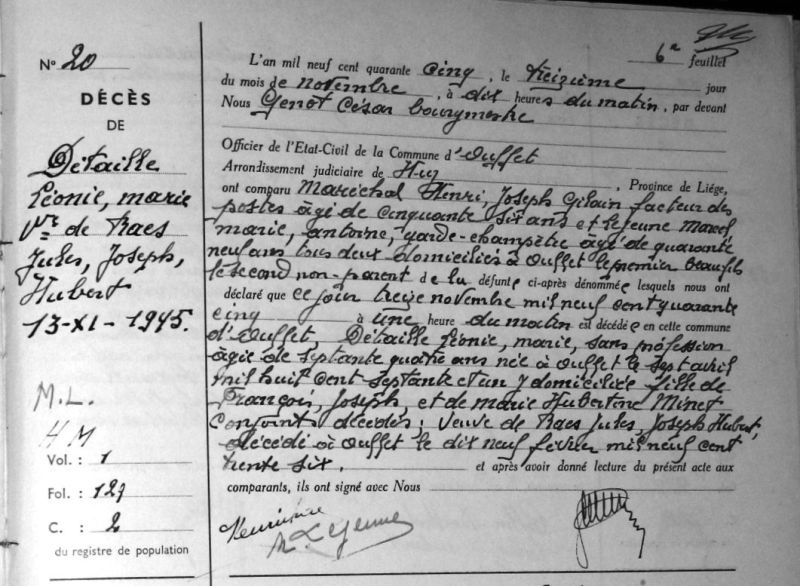 6e feuillet
N° 20
DÉCÈS
DE
Détaille
Léonie, marie
Vve de Raes
Jules, Joseph,
Hubert
13-XI-1945.
M.L.
H M
Vol. : 1
Fol. : 127
C. : 2
du registre de population
L'an mil neuf cent quarante cinq, le treizième jour
du mois de novembre, à dix heures du matin, par devant
Nous Genot César bourgmestre
Officier de l'Etat-Civil de la Commune d'Ouffet
Arrondissement judiciaire de Huy, Province de Liége,
ont comparu Maréchal Henri, Joseph Gilain facteur des
postes âgé de cinquante six ans et Lejeune Marcel,
marie, antoine, garde-champêtre âgé de quarante
neuf ans tous deux domiciliés à Ouffet le premier beau fils
le second non-parent de la défunte ci-après dénommée lesquels nous ont
déclaré que ce jour treize novembre mil neuf cent quarante
cinq à une heure du matin est décédée en cette commune
d'Ouffet, Détaille Léonie, marie, sans profession
âgée de septante quatre ans née à Ouffet le sept avril
mil huit cent septante et un y domiciliée fille de
François, Joseph, et de marie Hubertine Minet
Conjoints décédés ; Veuve de Raes Jules, Joseph Hubert,
décédé à Ouffet le dix neuf février mil neuf cent
trente six. et après avoir donné lecture du présent acte aux
comparants, ils ont signé avec Nous
M. Lejeune